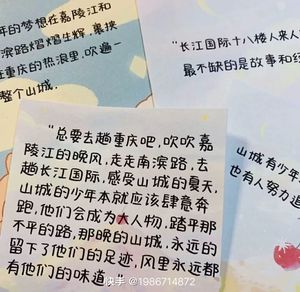 年的梦想在嘉陵江和
滨路熠熠生辉,裹挟
在重庆的热浪里,吹遍
整个山城.
"长江国际十八楼人来人
最不缺的是故事和
"总要去趟重庆吧,吹吹嘉
陵江的晚风,走走南滨路,去
趟长江国际,感受山城的夏天,
山城的少年本就应该肆意奔
跑,他们会成为大人物,踏平那
不平的路,那晚的山城,永远的
留下了他们的足迹,风里永远都
有他们的味道."
山城有少年
也有人努力追
快手 @1986714872